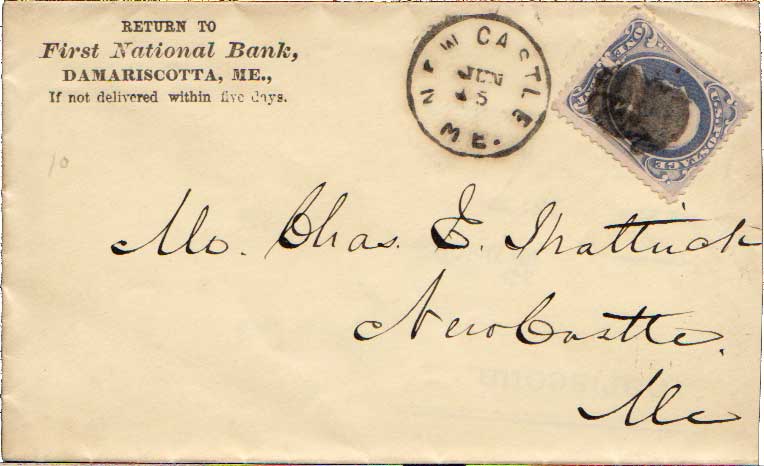 RETURN TO
First National Bank,
DAMARISCOTTA, ME.,
If not delivered within five days.
NEW CASTLE
JUN
15
ME.
ONE
U.S. POSTAGE
Mr. Chas. E.
NewCastle.
Me